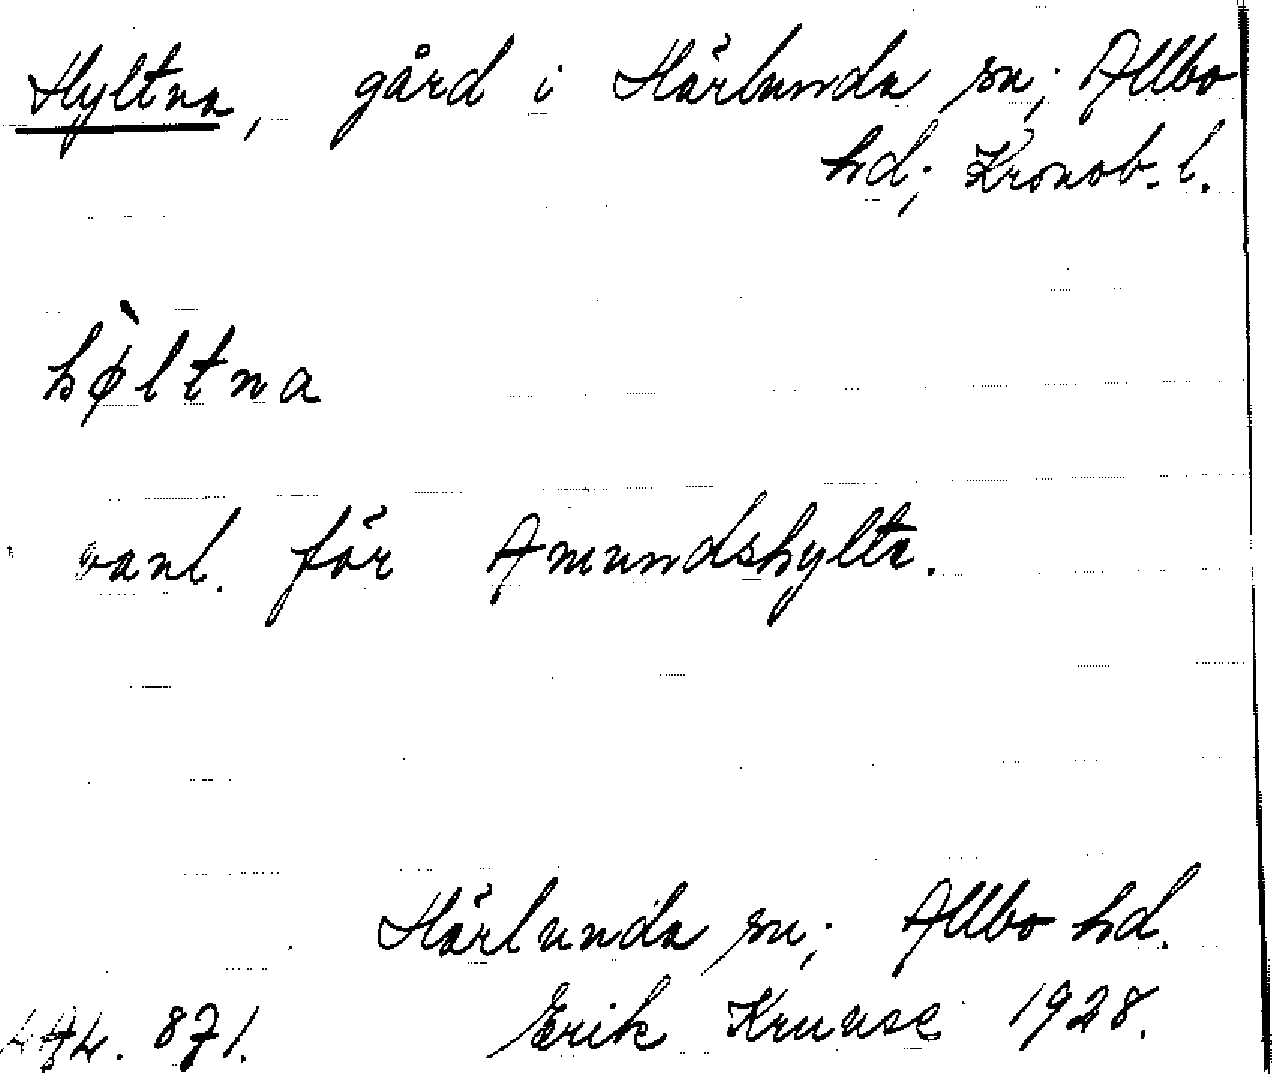 Hyltna, gård i Härlunda sn; Allbo
hd; Kronob. l.
hø̀ltna
vanl. för Amundshylta.
Härlunda sn; Allbo hd.
871. Erik Kruuse 1928.